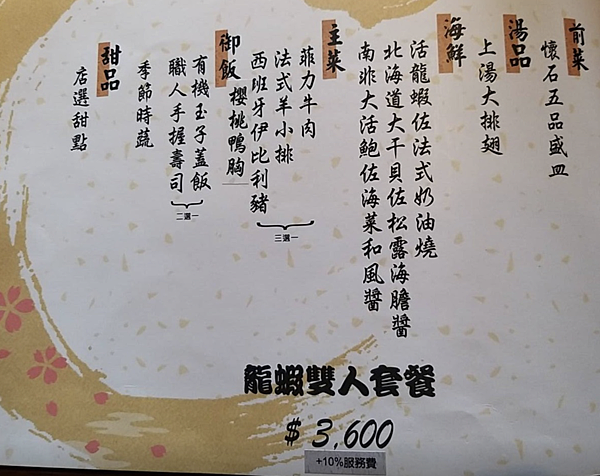 前菜
懷石五品盛皿
湯品
上湯大排翅
海鮮
活龍蝦佐法式奶油燒
北海道大干貝佐松露海膽醬
南非大活鮑佐海菜和風醬
主菜
菲力牛肉
法式羊小排
西班牙伊比利豬
三選一
櫻桃鴨胸
御飯
有機玉子蓋飯
職人手握壽司
二選一
季節時蔬
甜品
店選甜點
龍蝦雙人套餐
$3,600
+10%服務費